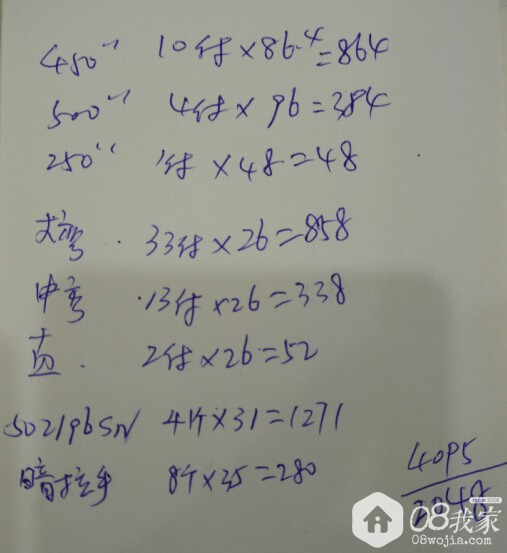 450" 10付×86.4=864
500" 4付×96=384
250" 1付×48=48
大弯 . 33付×26=858
中弯 .13付×26=338
直 . 2付×26=52
502196SN 41个×31=1271
暗拉手 8个×35=280
4095
2048
08我家
08wojia.com